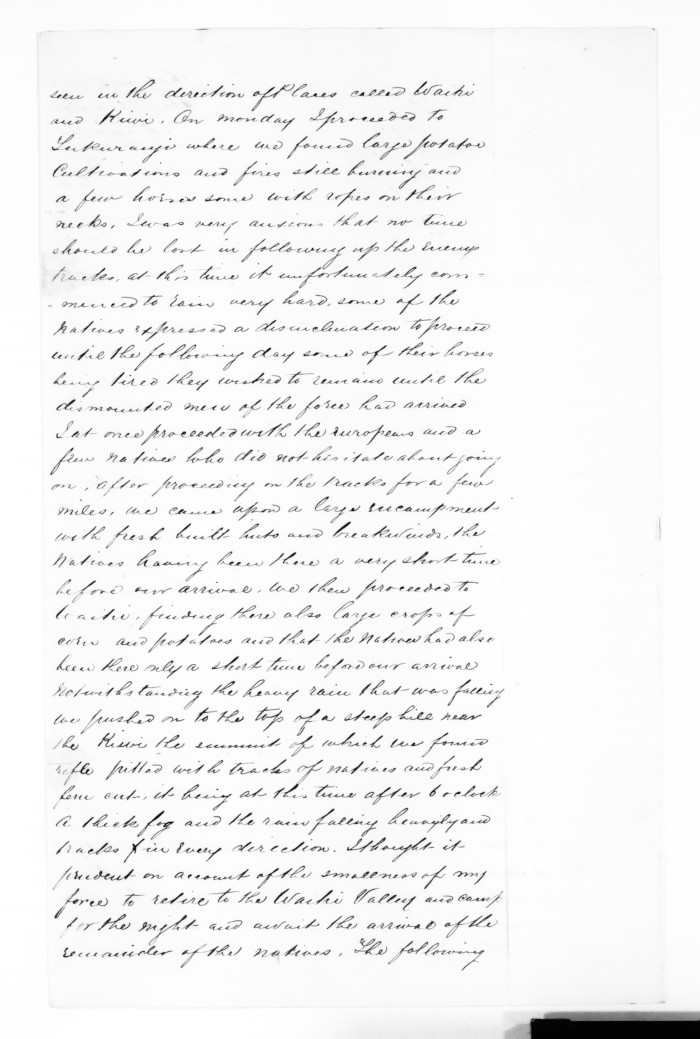 seen in the direction of Places called Waihi
and Kiwi. On monday I proceeded to
Pukuranji where we found large potatoe
Cultivations and fires still burning and
a few horses some with ropes on their
necks, I was very anxious that no time
should be lost in following up the enemy
tracks, at this time it unfortunately com-
-menced to rain very hard, some of the
Natives expressed a disinclination to proceed
until the following day some of their horses
being tired they wished to remain until the
dismounted men of the force had arrived
I at once proceeded with the europeans and a
few natives who did not hisitate about going
on, after proceeding on the tracks for a few
miles, we came upon a large encampment
with fresh built huts and breakwinds, the
Natives having been there a very short time
before our arrival, we then proceeded to
Waihi, finding there also large crops of
corn and potatoes and that the Natives had also
been there only a short time before our arrival
Notwithstanding the heavy rain that was falling
we pushed on to the top of a steep hill near
the Kiwi the summit of which we found
rifle pitted with tracks of natives and fresh
fern cut, it being at this time after 6 oclock
A thick fog and the rain falling heavyly and
tracks in every direction. I thought it
prudent on account of the smallness of my
force to retire to the Waihi Valley and camp
for the night and await the arrival of the
remainder of the natives. The following